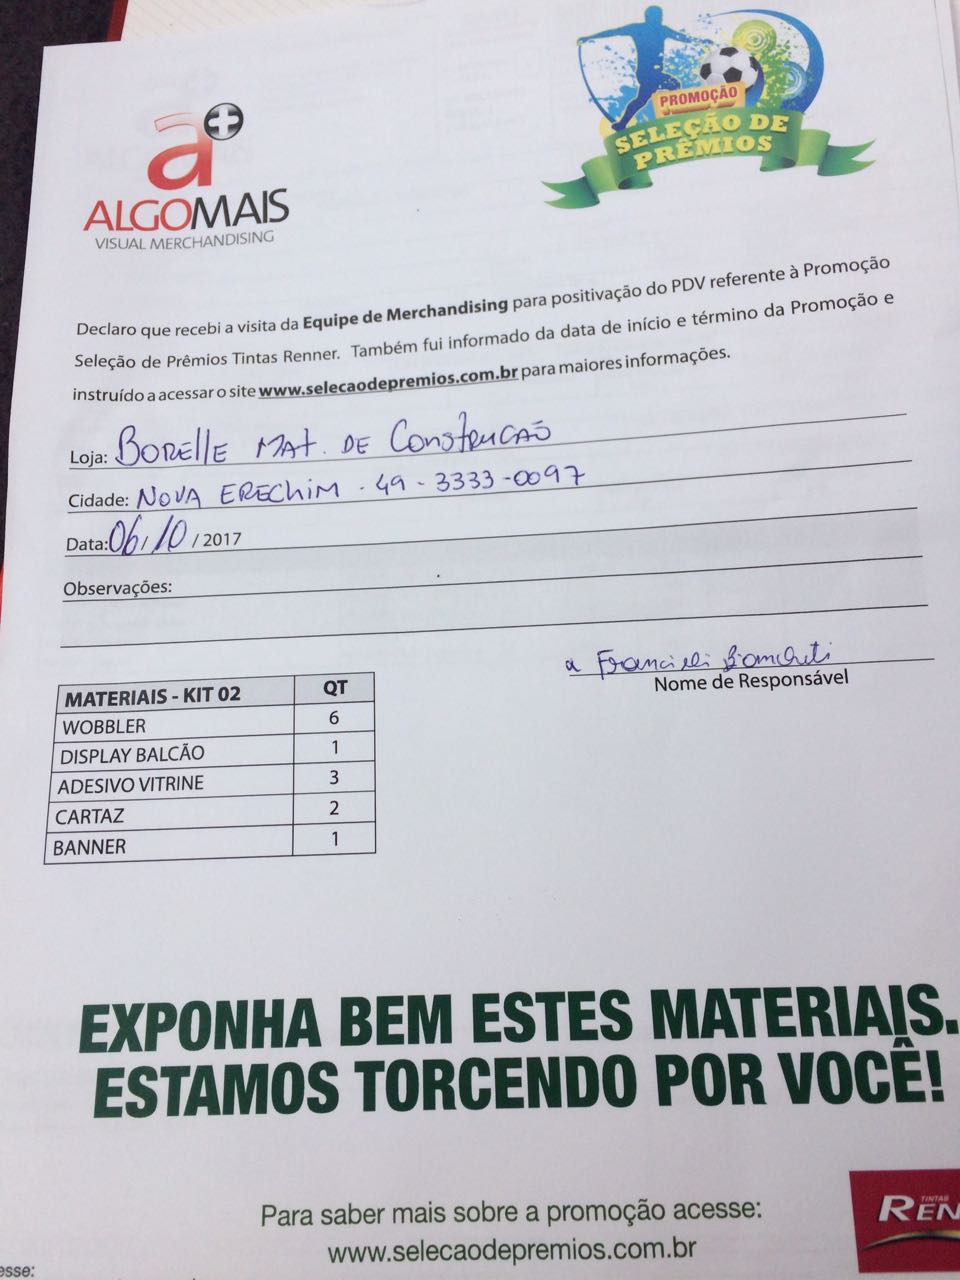 a+
ALGOMAIS
VISUAL MERCHANDISING
PROMOÇÃO
SELEÇÃO DE
PRÊMIOS
Declaro que recebi a visita da Equipe de Merchandising para positivação do PDV referente à Promoção
Seleção de Prêmios Tintas Renner. Também fui informado da data de início e término da Promoção e
instruído a acessar o site www.selecaodepremios.com.br para maiores informações.
Loja: BORElle MAT. DE CONSTRUCAÕ
Cidade: NOVA ERECHIM - 49 - 3333-0097
Data: 06/10/2017
Observações:
Francieli
Nome de Responsável
MATERIAIS - KIT 02 QT
WOBBLER 6
DISPLAY BALCÃO 1
ADESIVO VITRINE 3
CARTAZ 2
BANNER 1
EXPONHA BEM ESTES MATERIAIS.
ESTAMOS TORCENDO POR VOCÊ!
Para saber mais sobre a promoção acesse:
www.selecaodepremios.com.br
TINTAS
REN
esse: